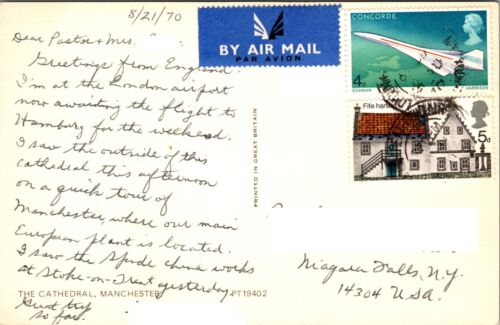 8/21/70
Dear Pastor & Mrs.
Greetings from England.
I'm at the London airport
now awaiting the flight to
Hamburg for the weekend.
I saw the outside of this
cathedral this afternoon
on a quick tour of
Manchester, where our main
European plant is located.
I saw the Spode china works
at Stoke-on-Trent yesterday.
Great trip
so far.
THE CATHEDRAL, MANCHESTER
PT19402
PRINTED IN GREAT BRITAIN
BY AIR MAIL
PAR AVION
CONCORDE
4d
HARRISON
Fife harl
5d
Niagara Falls, N.Y.
14304 U.S.A.